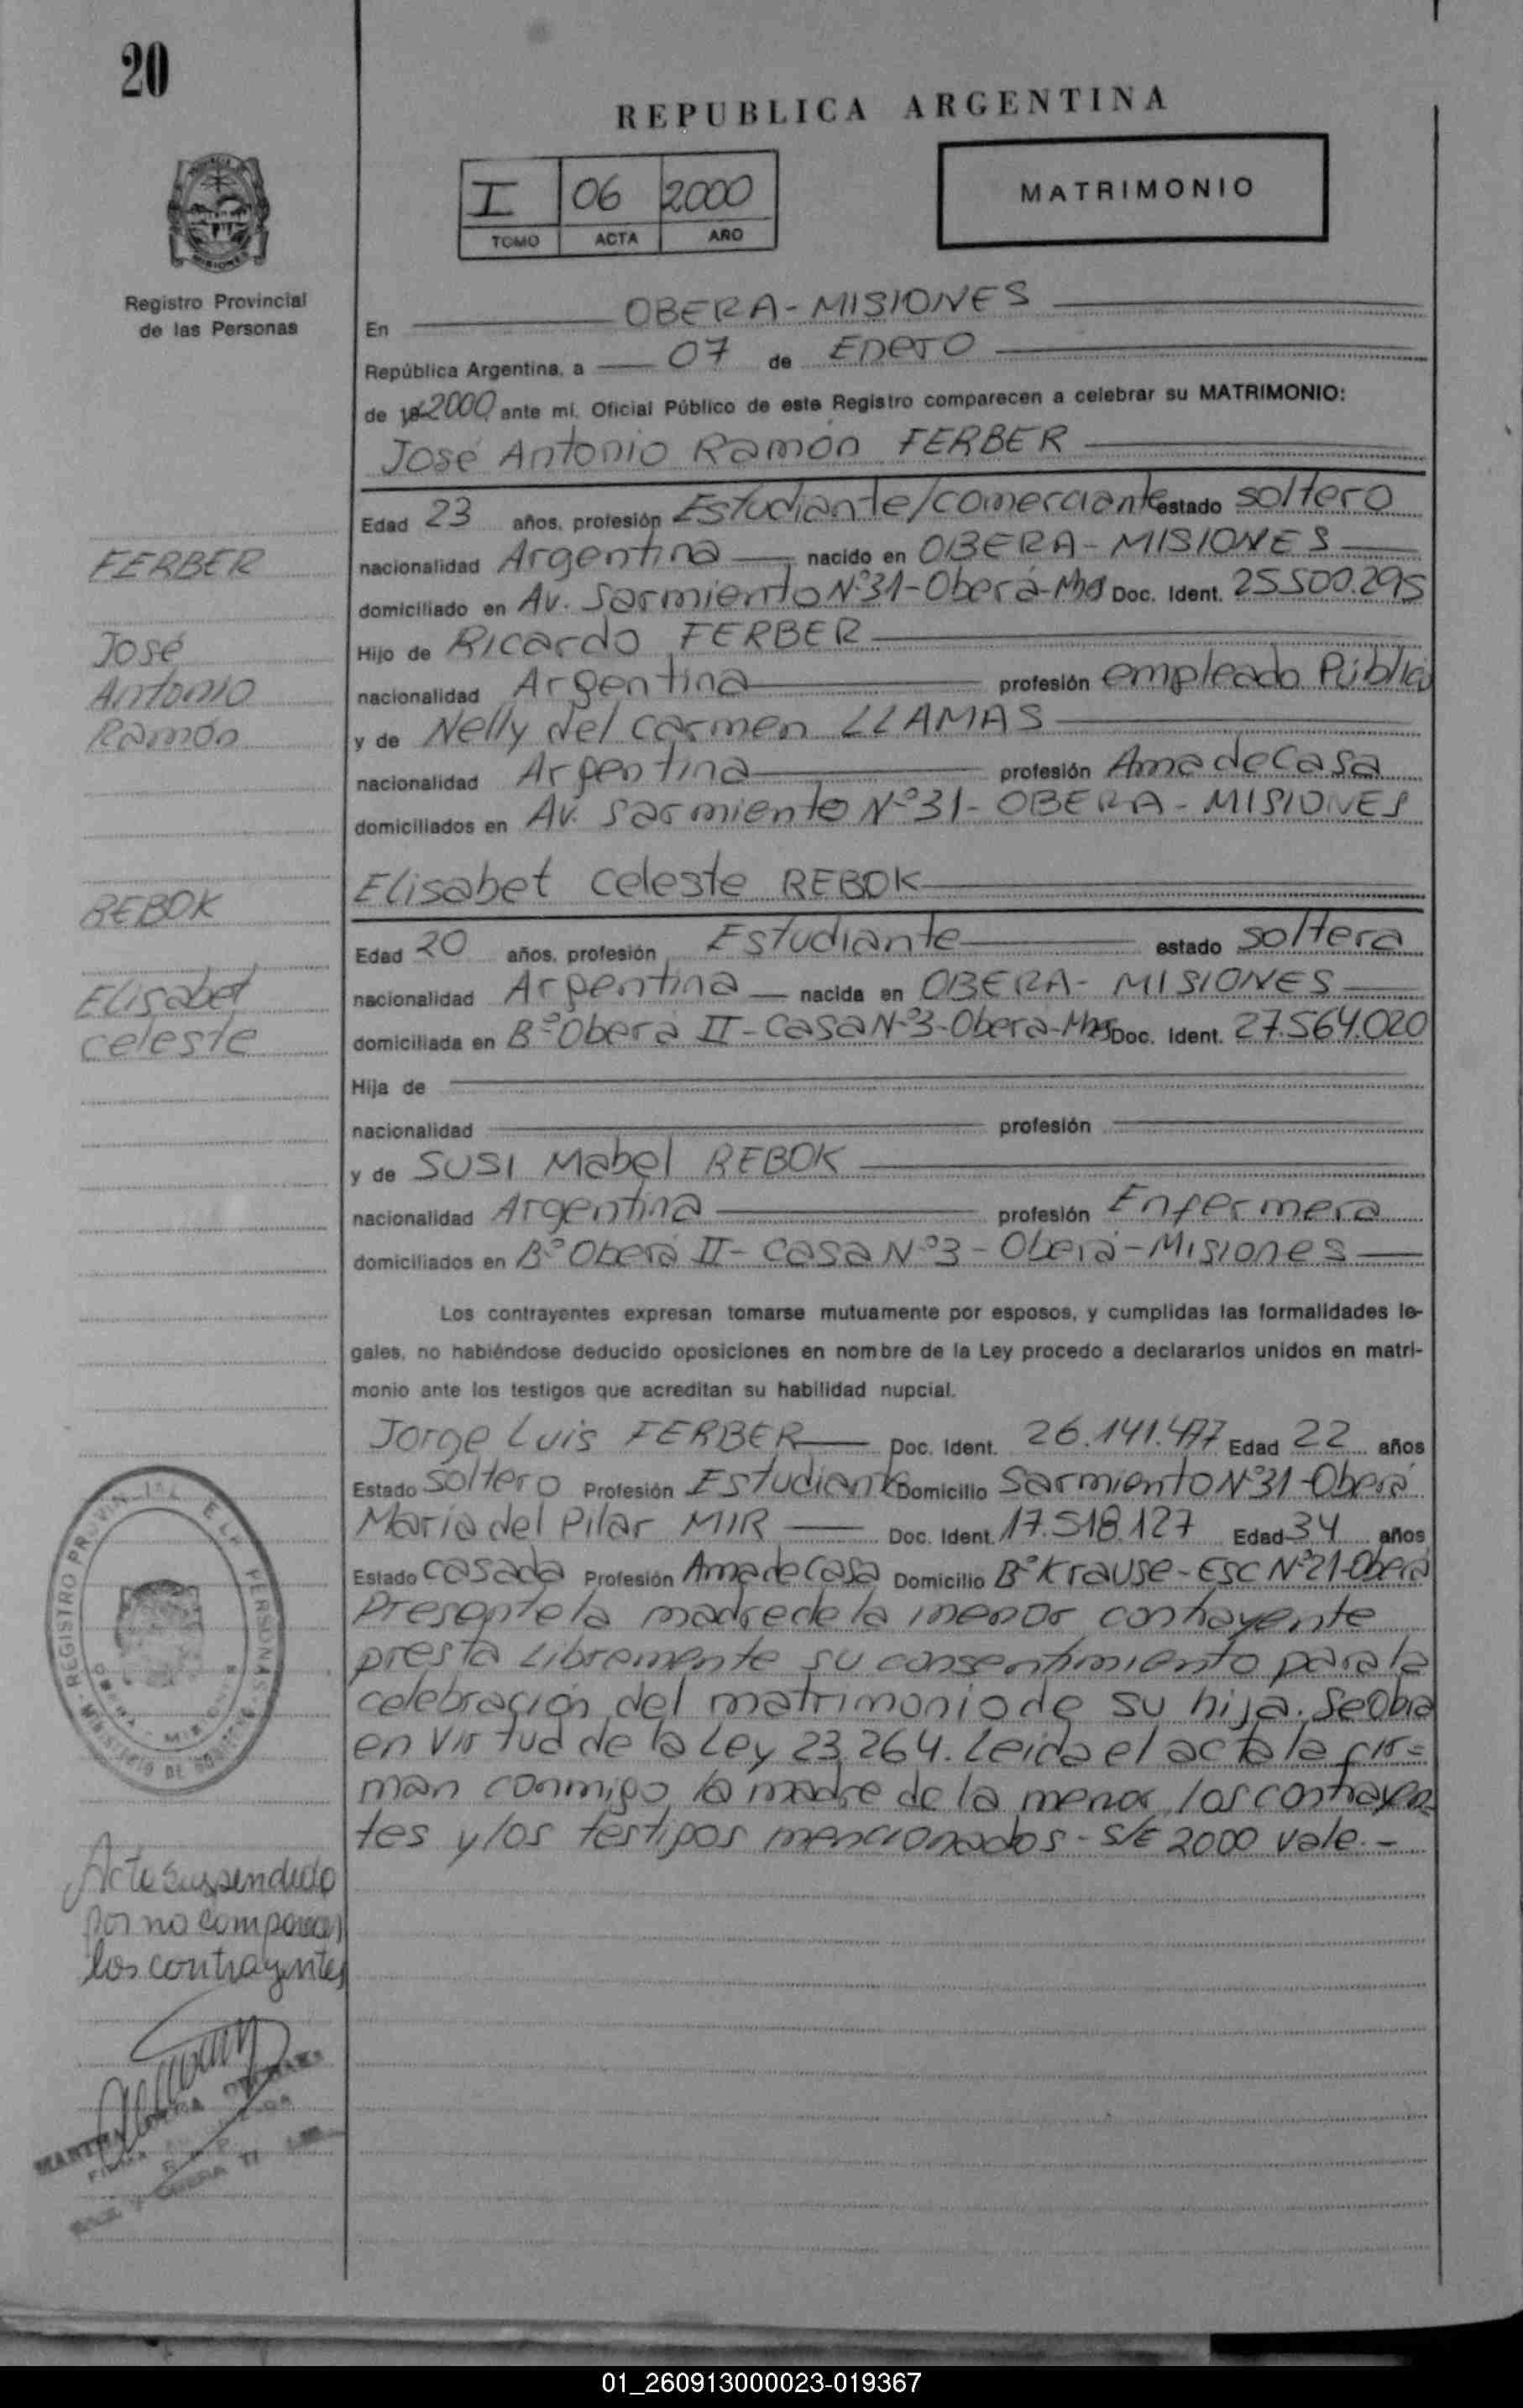 20
REPUBLICA ARGENTINA
I 06 2000
TOMO ACTA AÑO
MATRIMONIO
Registro Provincial
de las Personas
En OBERA-MISIONES
República Argentina, a 07 de Enero
de 2000 ante mí, Oficial Público de este Registro comparecen a celebrar su MATRIMONIO:
José Antonio Ramón FERBER
Edad 23 años, profesión Estudiante/comerciante estado soltero
FERBER
nacionalidad Argentina nacido en OBERA-MISIONES
domiciliado en Av. Sarmiento N°31-Oberá-Mns Doc. Ident. 25500.295
Hijo de Ricardo FERBER
José
Antonio
Ramón
nacionalidad Argentina profesión empleado Público
y de Nelly del carmen LLAMAS
nacionalidad Argentina profesión Ama de Casa
domiciliados en Av. Sarmiento N°31-OBERA-MISIONES
Elisabet Celeste REBOK
REBOK
Edad 20 años, profesión Estudiante estado soltera
Elisabet
celeste
nacionalidad Argentina nacida en OBERA-MISIONES
domiciliada en B° Oberá II-Casa N°3-Oberá-Mns Doc. Ident. 27.564.020
Hija de
nacionalidad profesión
y de SUSI Mabel REBOK
nacionalidad Argentina profesión Enfermera
domiciliados en B° Oberá II-Casa N°3-Oberá-Misiones
Los contrayentes expresan tomarse mutuamente por esposos, y cumplidas las formalidades le-
gales, no habiéndose deducido oposiciones en nombre de la Ley procedo a declararlos unidos en matri-
monio ante los testigos que acreditan su habilidad nupcial.
Jorge Luis FERBER Doc. Ident. 26.141.477 Edad 22 años
Estado soltero Profesión Estudiante Domicilio Sarmiento N°31-Oberá
María del Pilar MIR Doc. Ident. 17.518.127 Edad 34 años
Estado casada Profesión Ama de Casa Domicilio B° Krause-ESC N°21-Oberá
Presente la madre de la menor contrayente
presta Libremente su consentimiento para la
celebración del matrimonio de su hija. Se Obra
en virtud de la Ley 23.264. Leída el acta la fir=
man conmigo la madre de la menor, los contrayen-
tes y los testigos mencionados-S/E 2000 vale.-
REGISTRO PROVINCIAL DE LAS PERSONAS
MINISTERIO DE GOBIERNO
MISIONES
Acta suspendida
por no comparecer
los contrayentes
MARTHA
01_260913000023-019367